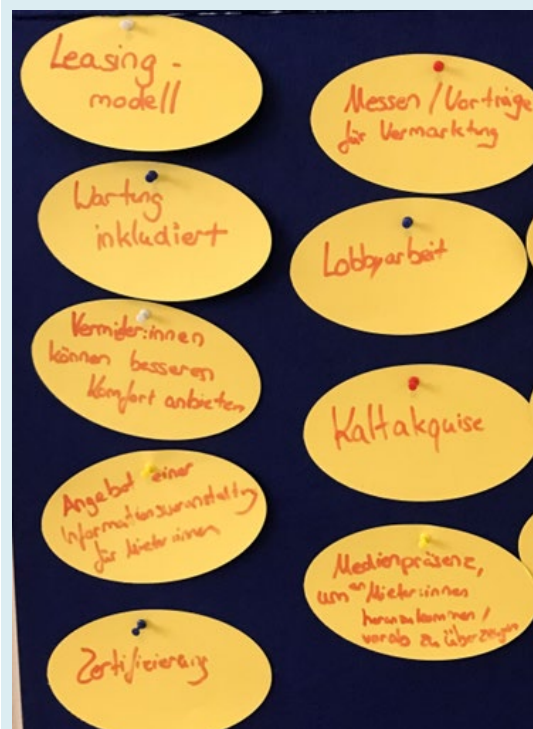 Leasing -
modell
Wartung
inkludiert
Vermieter:innen
können besseren
Komfort anbieten
Angebot einer
Informationsveranstaltung
für Mieter:innen
Zertifizierung
Messen / Vorträge
für Vermarktung
Lobbyarbeit
Kaltakquise
Medienpräsenz,
um an Mieter:innen
heranzukommen /
vorab zu überzeugen